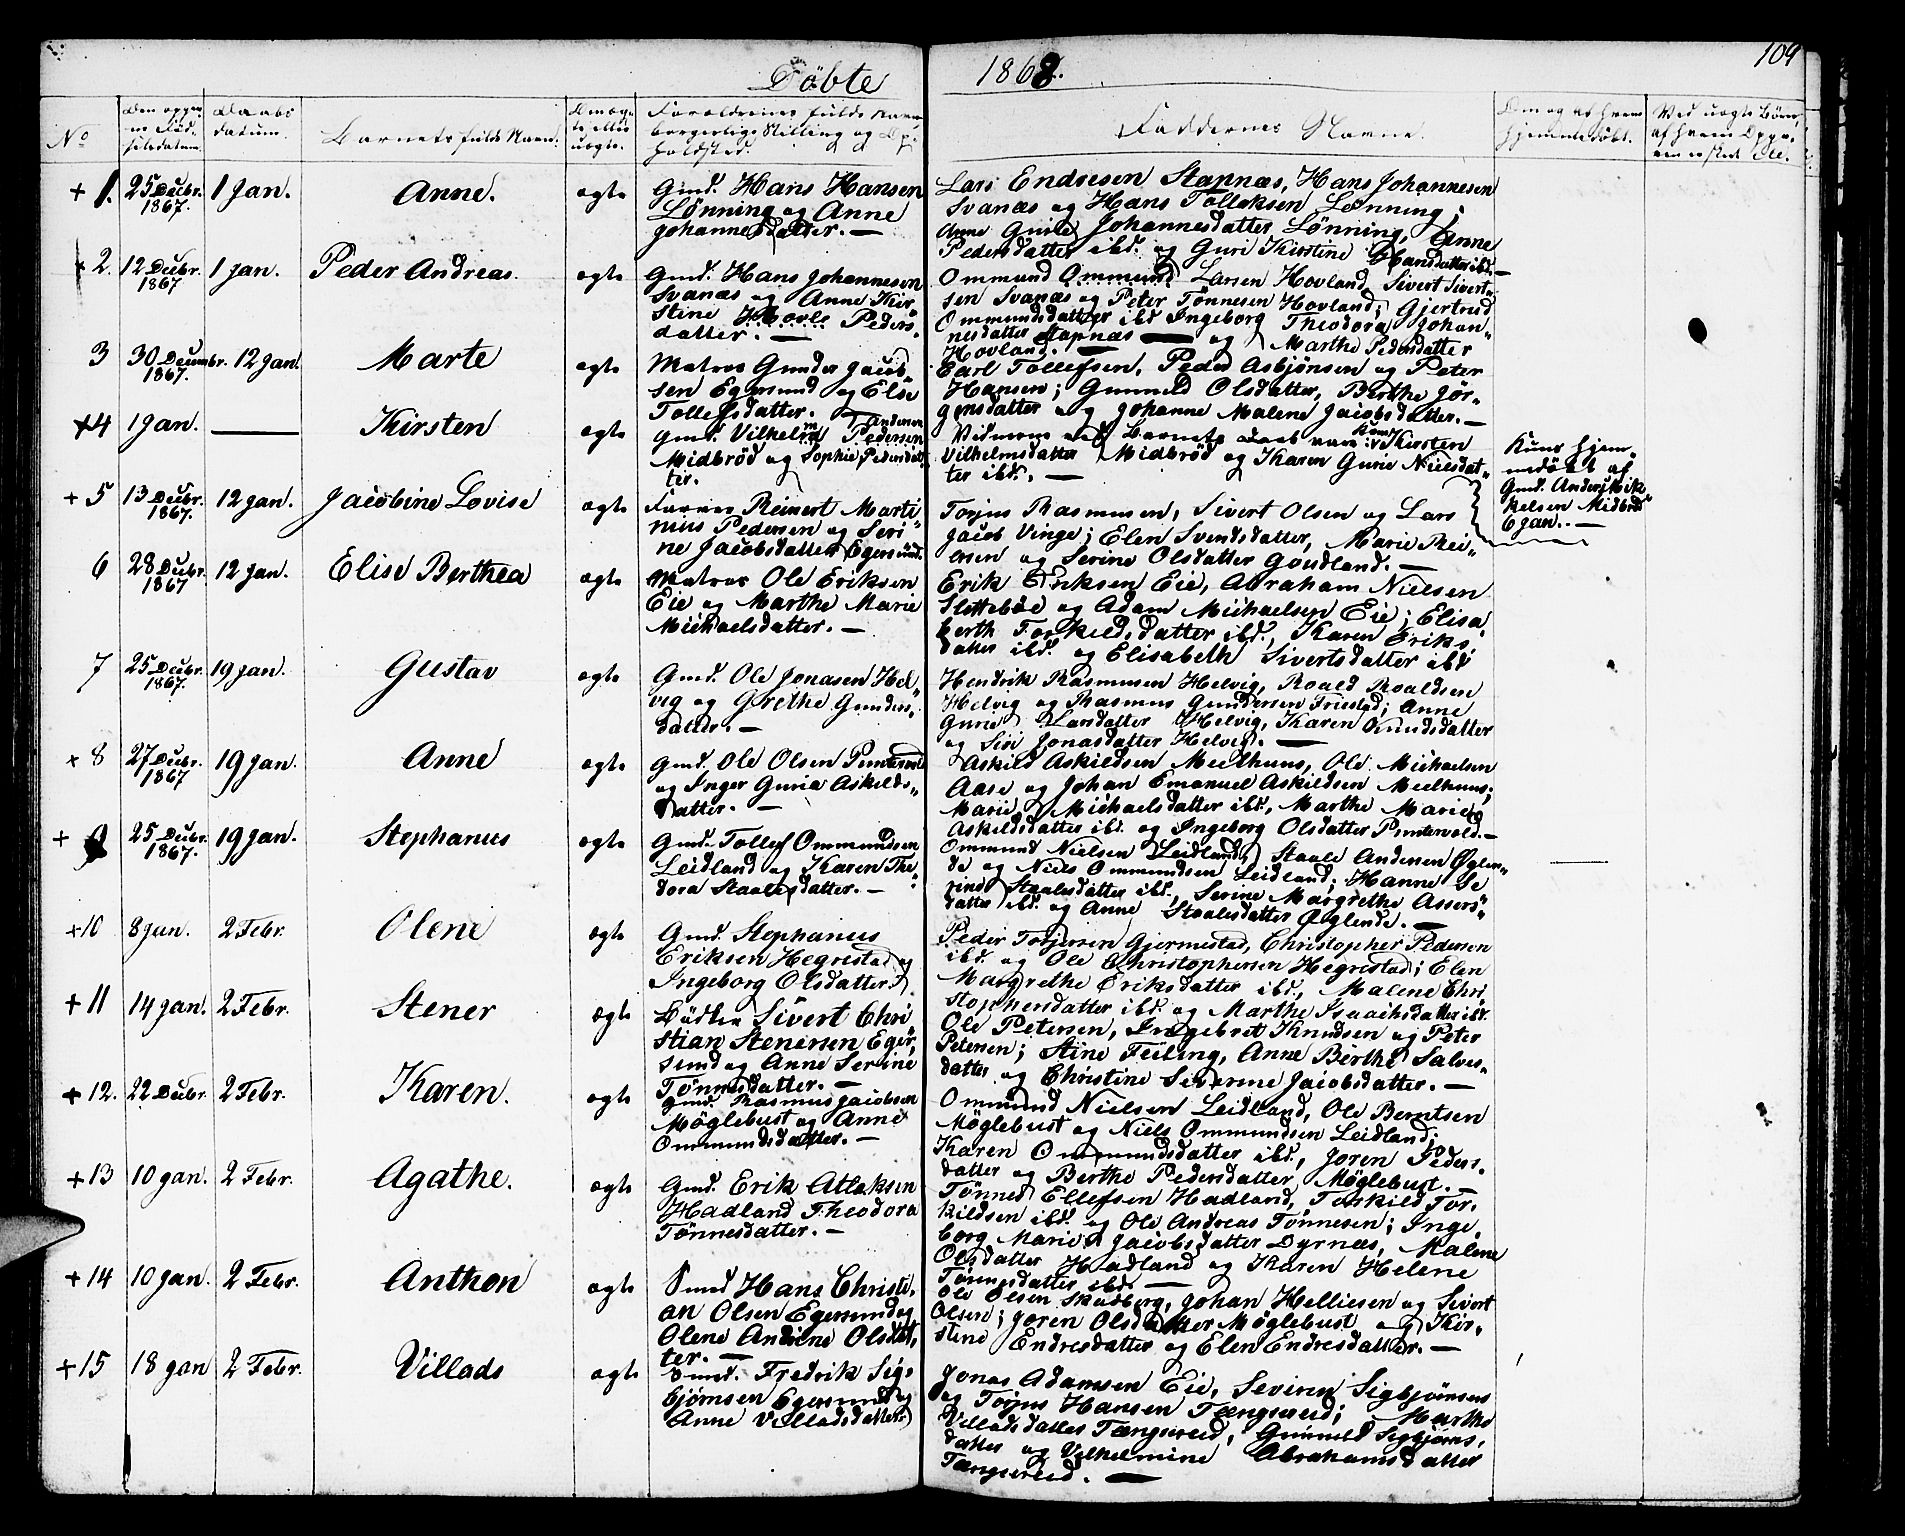 Döbte 1868.
104
No
Den opgivne Födselsdatum.
Daabsdatum.
Barnets fulde Navn.
Om ægte eller uægte.
Forældrenes fulde Navn, borgerlige Stilling og Opholdsted.
Faddernes Navne.
Om og af hvem hjemmedöbt.
Ved uægte Börn, af hvem Opgiven
+ 1. 25 Decbr. 1867. 1 Jan. Anne. ægte
Gmd. Hans Hansen
Lønning og Anne
Johannesdatter. —
Lars Endresen Stapnæs, Hans Johannesen
Svanæs og Hans Tollaksen Lønning;
Anne Gurie Johannesdatter Lønning, Anne
Pedersdatter ibd. og Guri Kirstine Hansdatter ibd. —
+ 2. 12 Decbr. 1867 1 Jan. Peder Andreas. ægte
Gmd. Hans Johannesen
Svanæs og Anne Kir-
stine Hovl. Peders-
datter. —
Ommund Ommund Larsen Hovland, Sivert Sivert-
sen Svanæs og Peter Tønnesen Hovland; Gjertrud
Ommundsdatter ibd Ingeborg Theodora Johan-
nesdatter Stapnæs — og Marthe Pedersdatter
Hovland. —
3 30 Decembr. 1867. 12 Jan. Marte ægte
Matros Gunder Jacob-
sen Egersund og Else
Tollefsdatter.
Carl Tollefsen, Peder Asbjönsen og Peter
Hansen; Gunneld Olsdatter, Berthe Jör-
gensdatter og Johanne Malene Jacobsdatter. —
+4 1 Jan. — Kirsten ægte
Gmd. Vilhelm Pedersen Tandersen
Midbröd og Sophie Pedersdat-
ter.
Vidnerne ved Barnets Daab vare: Kirsten
Vilhelmsdatter Midbröd og Karen Gurie Nielsdat-
ter ibd. —
Kuns hjem-
medöbt af
Gmd. Anders Mik-
kelsen Midbröd
6 Jan. —
+ 5 13 Decbr. 1867. 12 Jan. Jacobine Lovise ægte
Reinert Marti-
nius Pedersen og Seri-
ne Jacobsdatter Egersund.
Torjus Rasmussen, Sivert Olsen og Lars
Jacob Vinge; Elen Svendsdatter, Marie Rei-
ersen og Serine Olsdatter Goudland. —
6 28 Decbr. 1867 12 Jan. Elise Berthea ægte
Matros Ole Eriksen
Eie og Marthe Marie
Michaelsdatter. —
Erik Eriksen Eie, Abraham Nielsen
Slettebøe og Adam Michaelsen Eie; Elisa-
berth Torkildsdatter ibd., Karen Eriks-
datter ibd. og Elisabeth Sivertsdatter ibd
7 25 Decbr. 1867. 19 Jan. Gustav ægte
Gmd. Ole Jonasen Hel-
vig og Grethe Gunders-
datter. —
Hendrik Rasmusen Helvig, Roald Roaldsen
Helvig og Rasmus Gundersen Friestad; Anne
Gurie Larsdatter Helvig, Karen Knudsdatter
og Siri Jonasdatter Helvig. —
+ 8 27 Decbr. 1867 19 Jan. Anne ægte
Gmd. Ole Olsen Puntervold
og Inger Guria Askilds-
datter. —
Askild Askildsen Meelhuus, Ole Michaelsen
Aase og Johan Emanuel Askildsen Meelhuus;
Marie Michaelsdatter ibd., Marthe Marie
Askildsdatter ibd. og Ingeborg Olsdatter Puntervold. —
+ 9 25 Decbr. 1867. 19 Jan. Stephanus ægte
Gmd. Tollef Ommundsen
Leidland og Karen The-
dora Staalesdatter. —
Ommund Nielsen Leidland, Staale Andersen Øglen-
de og Niels Ommundsen Leidland; Hanne Se-
rine Staalesdatter ibd., Serine Margrethe Assers-
datter ibd. og Anne Staalesdatter Øglende. —
+10 8 Jan. 2 Febr. Olene ægte
Gmd. Stephanus
Eriksen Hegrestad og
Ingeborg Olsdatter
Peder Torjersen Gjermestad, Christopher Pedersen
ibd. og Ole Christophersen Hegrestad; Elen
Margrethe Eriksdatter ibd., Malene Chri-
stophersdatter ibd. og Marthe Isaachsdatter ibd.
+ 11 14 Jan. 2 Febr. Stener ægte
Bödker Sivert Chri-
stian Stenersen Eger-
sund og Anne Serine
Tønnesdatter. —
Ole Petersen, Ingebret Knudsen og Peter
Petersen; Stine Feiling, Anne Berthe Salves-
datter og Christine Severine Jacobsdatter. —
+ 12. 22 Decbr. 2 Febr. Karen. ægte
Gmd. Rasmus Jacobsen
Møglebust og Anne
Ommundsdatter. —
Ommund Nielsen Leidland, Ole Berntsen
Møglebust og Niels Ommundsen Leidland;
Karen Ommundsdatter ibd., Joren Peders-
datter og Berthe Pedersdatter Møglebust. —
+ 13 10 Jan. 2 Febr. Agathe. ægte
Gmd. Erik Atlaksen
Hadland Theodora
Tönnesdatter. —
Tönnes Ellefsen Hadland, Torkild Tor-
kildsen ibd. og Ole Andreas Tönnesen; Inge-
borg Marie Jacobsdatter Dyrnæs, Malene
Olsdatter Hadland og Karen Helene
Tönnesdatter ibd. —
+ 14 10 Jan. 2 Febr. Anthon ægte
Smed Hans Christi-
an Olsen Egersund og
Olene Andrine Olsdat-
ter. —
Ole Olsen Skadberg, Johan Helliesen og Sivert
Olsen; Joren Olsdatter Møglebust og Kir-
stine Endresdatter og Elen Endresdatter. —
+ 15 18 Jan 2 Febr. Villads ægte
Smed. Fredrik Sig-
björnsen Egersund og
Anne Villadsdatter
Jonas Adamsen Eie, Sevrin Sigbjörnsen
og Torjus Hansen Tængsereid; Marthe
Villadsdatter Tængsereid, Gunneld Sigbjörns-
datter og Vilhelmine Abrahamsdatter
Tængsereid. —